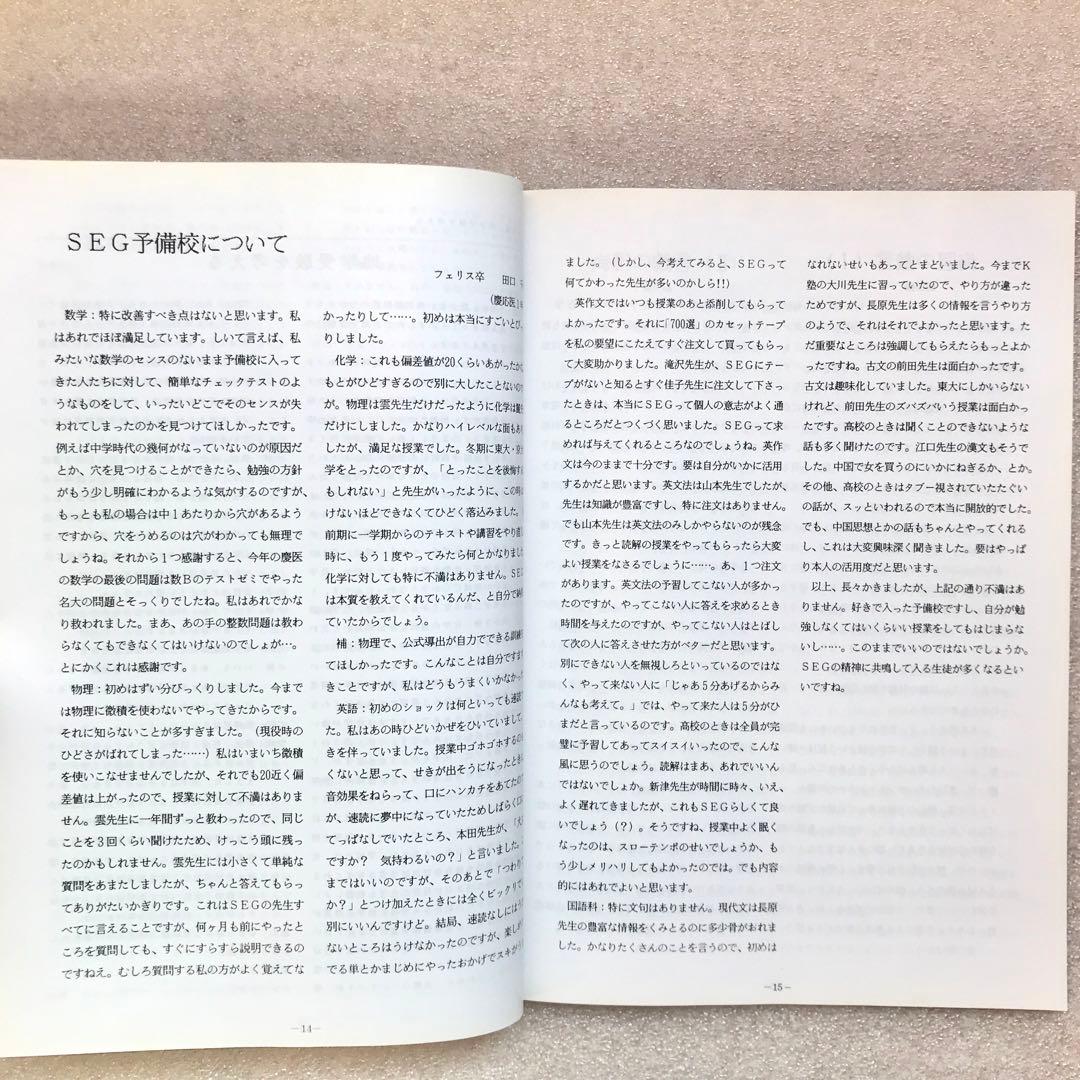 SEG予備校について
フェリス卒 田口
(慶応医1年
数学：特に改善すべき点はないと思います。私
はあれでほぼ満足しています。しいて言えば、私
みたいな数学のセンスのないまま予備校に入って
きた人たちに対して、簡単なチェックテストのよ
うなものをして、いったいどこでそのセンスが失
われてしまったのかを見つけてほしかったです。
例えば中学時代の幾何がなっていないのが原因だ
とか、穴を見つけることができたら、勉強の方針
がもう少し明確にわかるような気がするのですが、
もっとも私の場合は中1あたりから穴があるよう
ですから、穴をうめるのは穴がわかっても無理で
しょうね。それから1つ感謝すると、今年の慶医
の数学の最後の問題は数Bのテストゼミでやった
名大の問題とそっくりでしたね。私はあれでかな
り救われました。まあ、あの手の整数問題は教わ
らなくてもできなくてはいけないのでしょが…。
とにかくこれは感謝です。
物理：初めはずい分びっくりしました。今まで
は物理に微積を使わないでやってきたからです。
それに知らないことが多すぎました。（現役時の
ひどさがばれてしまった……）私はいまいち微積
を使いこなせませんでしたが、それでも20近く偏
差値は上がったので、授業に対して不満はありま
せん。雲先生に一年間ずっと教わったので、同じ
ことを3回くらい聞けたため、けっこう頭に残っ
たのかもしれません。雲先生には小さくて単純な
質問をあまたしましたが、ちゃんと答えてもらっ
てありがたいかぎりです。これはSEGの先生す
べてに言えることですが、何ヶ月も前にやったと
ころを質問しても、すぐにすらすら説明できるの
ですねえ。むしろ質問する私の方がよく覚えてな
かったりして……。初めは本当にすごいとび
りしました。
化学：これも偏差値が20くらいあがったか
もとがひどすぎるので別に大したことない
が。物理は雲先生だけだったように化学は
だけにしました。かなりハイレベルな面もあり
したが、満足な授業でした。冬期に東大・京
学をとったのですが、「とったことを後悔す
もしれない」と先生がいったように、この時
けないほどできなくてひどく落込みました。
前期に一学期からのテキストや講習をやり直
時に、もう1度やってみたら何とかなりました
化学に対しても特に不満はありません。SE
は本質を教えてくれているんだ、と自分で納
ていたからでしょう。
補：物理で、公式導出が自力でできる訓練
てほしかったです。こんなことは自分ですま
きことですが、私はどうもうまくいかなかっ
英語：初めのショックは何といっても速読
た。私はあの時ひどいかぜをひいていまして
きを伴っていました。授業中ゴホゴホするの
くないと思って、せきが出そうになったとき
音効果をねらって、口にハンカチをあてたの
が、速読に夢中になっていたためしばらく口
てっぱなしでいたところ、本田先生が、「大
ですか？ 気持わるいの？」と言いました。
まではいいのですが、そのあとで「つわり
か？」とつけ加えたときには全くビックリ
別にいいんですけど。結局、速読なしには
ないところはうけなかったのですが、楽し
でる単とかまじめにやったおかげでスキが
—14—
ました。（しかし、今考えてみると、SEGって
何てかわった先生が多いのかしら!!）
英作文ではいつも授業のあと添削してもらって
よかったです。それに「700選」のカセットテープ
を私の要望にこたえてすぐ注文して買ってもらっ
て大変助かりました。滝沢先生が、SEGにテー
プがないと知るとすぐ佳子先生に注文して下さっ
たときは、本当にSEGって個人の意志がよく通
るところだとつくづく思いました。SEGって求
めれば与えてくれるところなのでしょうね。英作
文は今のままで十分です。要は自分がいかに活用
するかだと思います。英文法は山本先生でしたが、
先生は知識が豊富ですし、特に注文はありません。
でも山本先生は英文法のみしかやらないのが残念
です。きっと読解の授業をやってもらったら大変
よい授業をなさるでしょうに……。あ、1つ注文
があります。英文法の予習してこない人が多かっ
たのですが、やってこない人に答えを求めるとき
時間を与えたのですが、やってこない人はとばし
て次の人に答えさせた方がベターだと思います。
別にできない人を無視しろといっているのではな
く、やって来ない人に「じゃあ5分あげるからみ
んなも考えて。」では、やって来た人は5分がひ
まだと言っているのです。高校のときは全員が完
璧に予習してあってスイスイいったので、こんな
風に思うのでしょう。読解はまあ、あれでいいん
ではないでしょうか。新津先生が時間に時々、いえ、
よく遅れてきましたが、これもSEGらしくて良
いでしょう（？）。そうですね、授業中よく眠く
なったのは、スローテンポのせいでしょうか、も
う少しメリハリしてもよかったのでは。でも内容
的にはあれでよいと思います。
国語科：特に文句はありません。現代文は長原
先生の豊富な情報をくみとるのに多少骨がおれま
した。かなりたくさんのことを言うので、初めは
なれないせいもあってとまどいました。今までK
塾の大川先生に習っていたので、やり方が違った
ためですが、長原先生は多くの情報を言うやり方
のようで、それはそれでよかったと思います。た
だ重要なところは強調してもらえたらもっとよか
ったですね。古文の前田先生は面白かったです。
古文は趣味化していました。東大にしかいらない
けれど、前田先生のズバズバいう授業は面白かっ
たです。高校のときは聞くことのできないような
話も多く聞けたのです。江口先生の漢文もそうで
した。中国で女を買うのにいかにねぎるか、とか。
その他、高校のときはタブー視されていたたぐい
の話が、スッといわれるので本当に開放的でした。
でも、中国思想とかの話もちゃんとやってくれる
し、これは大変興味深く聞きました。要はやっぱ
り本人の活用度だと思います。
以上、長々かきましたが、上記の通り不満はあ
りません。好きで入った予備校ですし、自分が勉
強しなくてはいくらいい授業をしてもはじまらな
いし……。このままでいいのではないでしょうか。
SEGの精神に共鳴して入る生徒が多くなるとい
いですね。
—15—